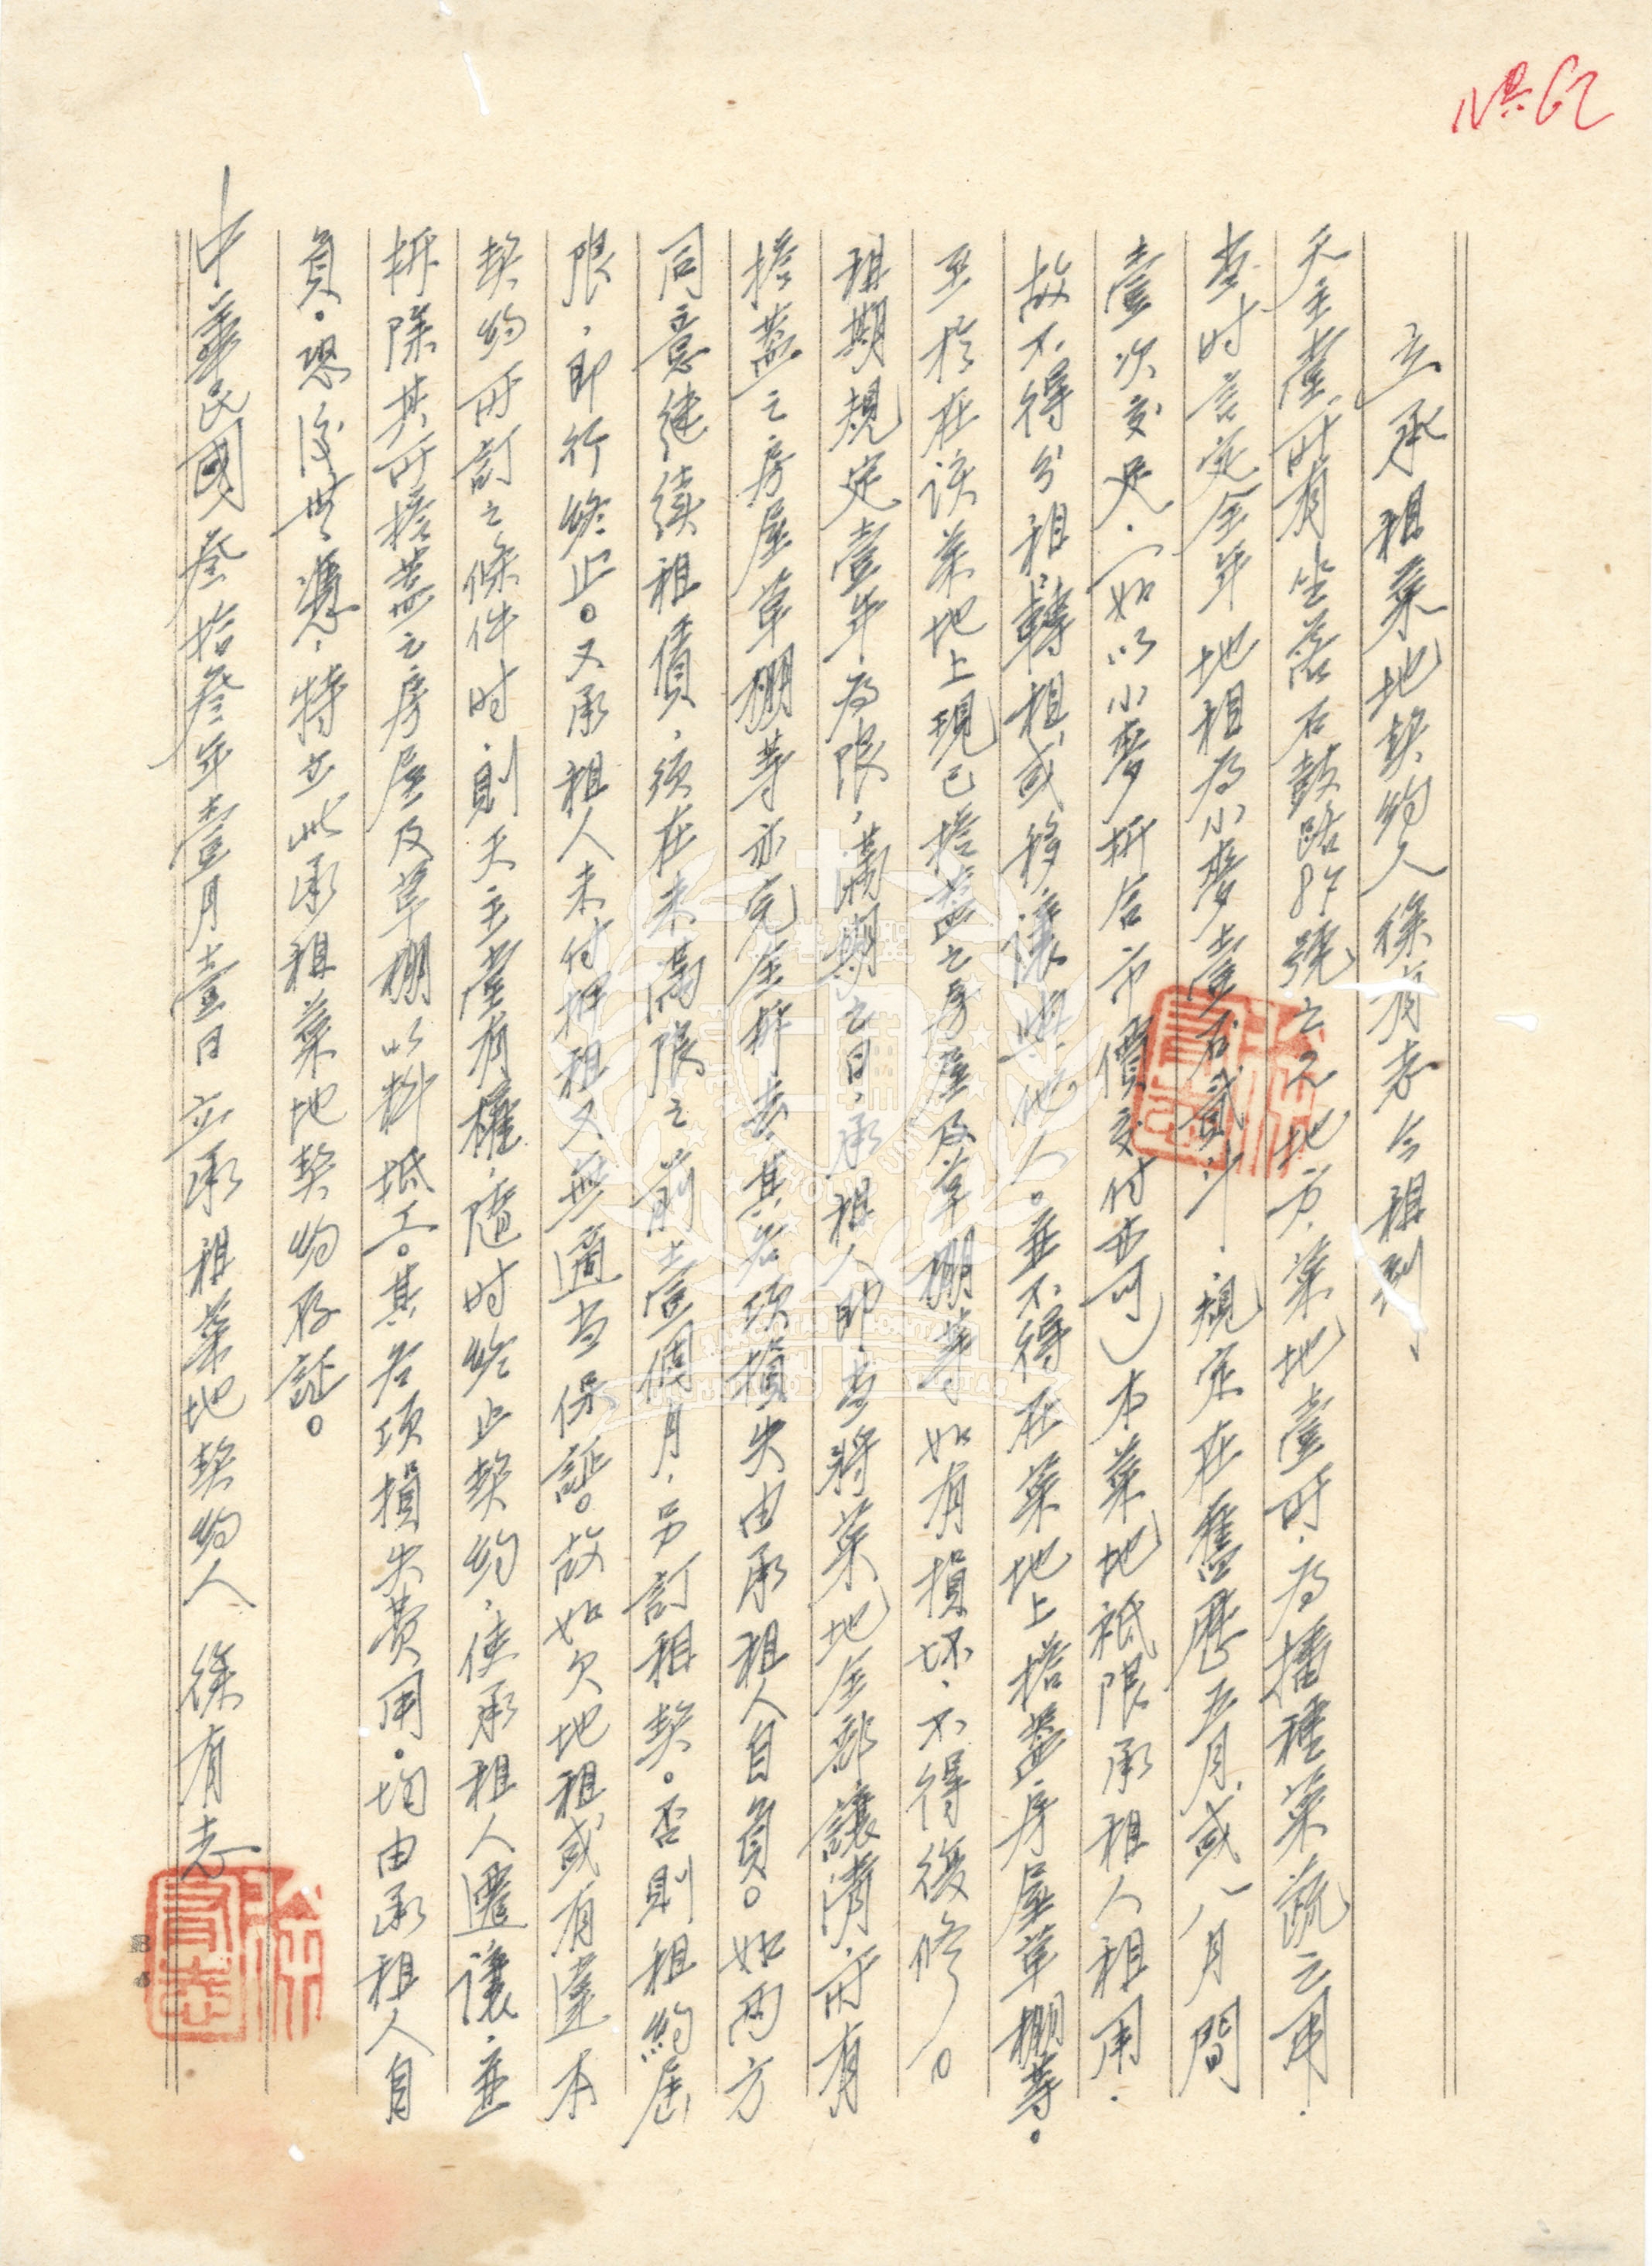 N具62
立承租菜地契約人徐有志今租到
天主堂所有坐落石鼓路87號之2地方、菜地壹所、為播種菜蔬之用、
當时言定全年地租為小麥壹石貳斗、規定在舊歷五月或八月間
壹次交足、(如以小麥折合市價交付亦可)本菜地祗限承租人租用、
故不得分租轉租或移讓與他人。並不得在菜地上搭蓋房屋草棚等。
至於在该菜地上現已搭蓋之房屋及草棚等如有損坏、不得復修。
租期規定壹年為限,满期之日、承租人即當將菜地全部讓清所有
搭蓋之房屋草棚等亦完全拆去其各項損失由承租人自負。如两方
同意继續租債、须在未满限之前壹個月、另訂租契。否則租約屆
限,即行終止。又承租人未付押租又無適當保証。故如欠地租或有違本
契約所訂之條件时、則天主堂有權隨时終止契約、使承租人遷讓、並
拆除其所搭蓋之房屋及草棚以料抵工。其各項損失費用。均由承租人自
負。恐後無憑、特立此承租菜地契約存証。
中華民國叁拾叁年壹月壹日立承租菜地契約人 徐有志
徐有志
徐有志